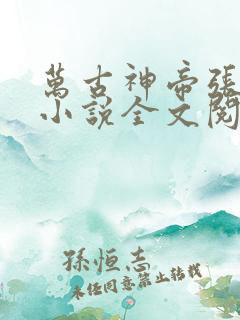 萬古神帝張
小說全文閱
孫恒志
未經同意禁止轉載